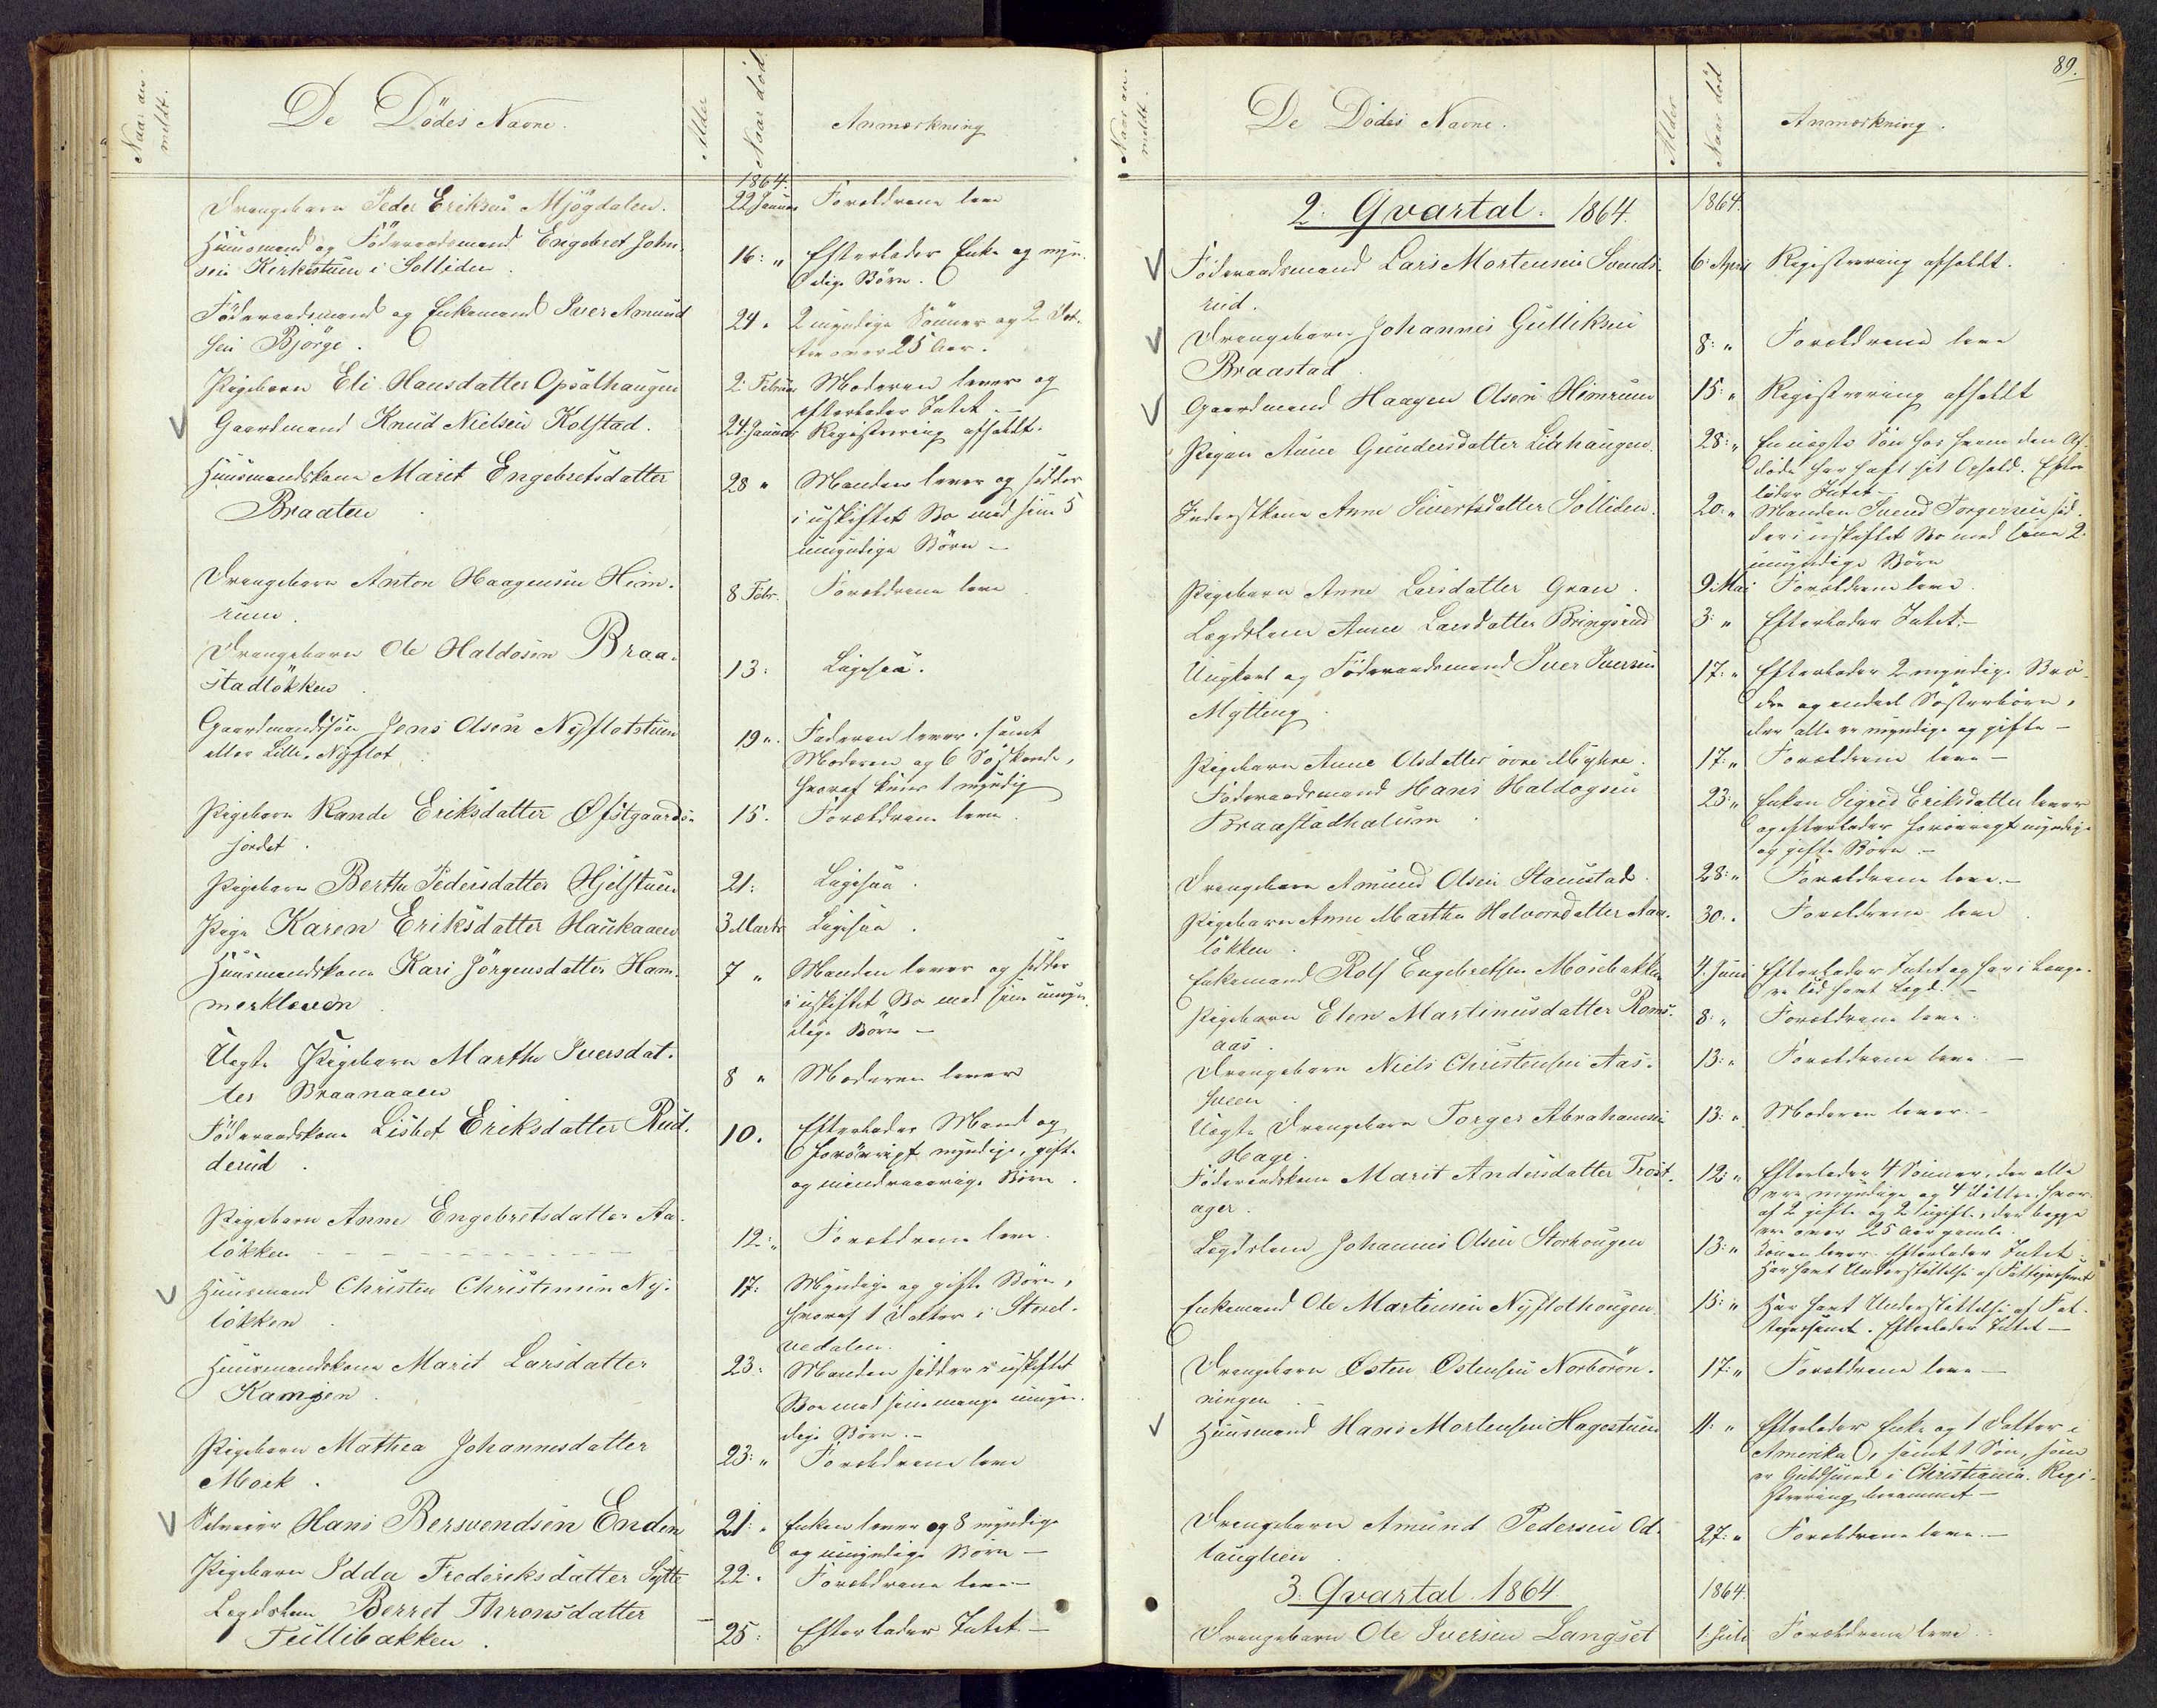 Naar an-
meldt.
De Dödes Navne.
Alder
Naar död
Anmærkning
1864.
Drengebarn Peder Eriksen Mjögdalen.
22 Januar
Forældrene leve
Huusmand og Föderaadsmand Engebret John-
sen Kirkestuen i Solliden.
16: "
Efterlader Enke og myn-
dige Börn.
Föderaadsmand og Enkemand Iver Amund
sen Björge.
24 "
2 myndige Sönner og 2 Döt-
tre over 25 Aar.
Pigebarn Eli Hansdatter Opsalhaugen
2: Februar
Moderen lever og
efterlader Intet.—
Gaardmand Knud Nielsen Kolstad.
24. Januar
Registrering afholdt.
Huusmandskone Marit Engebretsdatter
Braaten
28 "
Manden lever og sidder
i uskiftet Bo med sine 5
umyndige Börn —
Drengebarn Anton Haagensen Him-
rum.
8 Febr.
Forældrene leve
Drengebarn Ole Haldosen Braa-
stadlökken
13:
Ligesaa.
Gaardmandssön Jens Olsen Nyflotstuen
eller Lille-Nyflot
19 ".
Faderen lever, samt
Moderen og 6 Söskende,
hvoraf kuns 1 myndig
Pigebarn Rande Eriksdatter Øfstgaards-
jordet.
15.
Forældrene leve.
Pigebarn Berthe Pedersdatter Hjelstuen
21:
Ligesaa.
Pige Karen Eriksdatter Haukaaen
3 Marts
Ligesaa.
Huusmandskone Kari Jörgensdatter Ham-
merkleven
7 "
Manden lever og sidder
i uskiftet Bo med sine umyn-
dige Börn —
Uægte Pigebarn Marthe Iversdat-
ter Braanaaen
8 "
Moderen lever
Föderaadskone Lisbet Eriksdatter Rud-
derud.
10.
Efterlader Mand og
forövrigt myndige, gifte
og mindreaarige Börn.
Pigebarn Anne Engebretsdatter Aa-
lökken
12: "
Forældrene leve.
Huusmand Christen Christensen Ny-
lökken
17:
Myndige og gifte Börn,
hvoraf 1 Datter i Storel-
vedalen.
Huusmandskone Marit Larsdatter
Kampen.
23:
Manden sidder i uskiftet
Boe med sine mange umyn-
dige Börn.—
Pigebarn Mathea Johannesdatter
Moek.
23: "
Forældrene leve
Selveier Hans Bersvendsen Enden
21: "
Enken lever og 8 myndige
og umyndige Börn —
Pigebarn Idda Frederiksdatter Sylte
22: "
Forældrene leve —
Lægdslem Berret Thronsdatter
Tullibakken.
25:
Efterlader Intet —
89.
Naar an-
meldt.
De Dödes Navne.
Alder
Naar död
Anmærkning.
2: Qvartal. 1864.
1864.
Föderaadsmand Lars Mortensen Svends-
rud.
6: April
Registrering afholdt.
Drengebarn Johannes Gulliksen
Braastad
8: "
Forældrene leve
Gaardmand Haagen Olsen Himrum
15: "
Registrering afholdt
Pigen Anne Gundersdatter Liahaugen.
28: "
En uægte Sön hos hvem den Af-
döde har havt sit Ophold. Efter-
lader Intet —
Inderstkone Anne Sivertsdatter Solliden.
20: "
Manden Svend Torgersen sid-
der i uskiftet Bo med sine 2
umyndige Börn
Pigebarn Anne Larsdatter Gran.
9: Mai
Forældrene leve.
Lægdslem Anne Larsdatter Bringsrud
3: "
Efterlader Intet.—
Ungkarl og Föderaadsmand Iver Iversen
Mytting.
17: "
Efterlader 2 myndige Brö-
dre og endeel Sösterbörn,
der alle er myndige og gifte —
Pigebarn Anne Olsdatter övre Myhre.
17: "
Forældrene leve —
Föderaadsmand Hans Haldogsen
Braastadhalsen.
23: "
Enken Sigrid Eriksdatter lever
og efterlader forövrigt myndige
og gifte Börn —
Drengebarn Amund Olsen Staustad.
28: "
Forældrene leve.—
Pigebarn Anne Marthe Halvorsdatter Aaa-
lökken.
30. "
Forældrene leve
Enkemand Rolf Engebretsen Mosebakken
4. Juni
Efterlader Intet og har i Længe-
re Tid havt Lægd. —
Pigebarn Elen Martinusdatter Roms-
aas.
8: "
Forældrene leve.
Drengebarn Niels Christensen Aas-
hveen
13: "
Forældrene leve. —
Uægte Drengebarn Torger Abrahamsen
Hage.
13: "
Moderen lever.—
Föderaadskone Marit Andersdatter Trost-
ager.
12: "
Efterlader 4 Sönner, der alle
ere myndige og 4 Döttre, hvor-
af 2 gifte og 2 ugifte, der begge
ere over 25 Aar gamle.
Lægdslem Johannes Olsen Storhougen
13: "
Konen lever. Efterlader Intet.
Har havt Understöttelse af Fattigvæsenet
Enkemand Ole Martensen Nyflothougen.
15: "
Har havt Understöttelse af Fat-
tigvæsenet. Efterlader Intet —
Drengebarn Østen Østensen Norborön-
ningen.
17: "
Forældrene leve —
Huusmand Hans Mortensen Hagestuen
11: "
Efterlader Enke og 1 Datter i
Amerika, samt 1 Sön, som
er Guldsmed i Christiania. Regi-
strering berammet —
Drengebarn Amund Pedersen Od-
lauglien
27: "
Forældrene leve.—
3. Qvartal 1864
1864
Drengebarn Ole Iversen Langset
1. Juli
Forældrene leve.